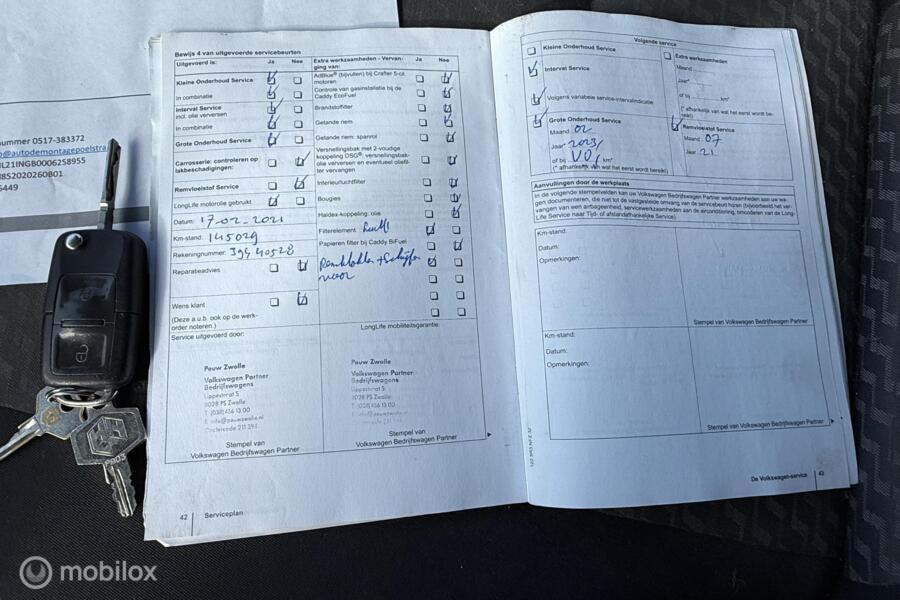 nummer 0517-383372
fo@autodemontagepoelstra
NL21INGB0006258955
852020260B01
5449
Bewijs 4 van uitgevoerde servicebeurten
Uitgevoerd is: Ja Nee
Kleine Onderhoud Service
in combinatie
Interval Service
incl. olie verversen
In combinatie
Grote Onderhoud Service
Carrosserie: controleren op
lakbeschadigingen:
Remvloeistof Service
LongLife motorolie gebruikt
Datum: 17-02-2021
Km-stand: 145029
Rekeningnummer: 39440528
Reparatieadvies
Wens klant
(Deze a.u.b. ook op de werk-
order noteren.)
Service uitgevoerd door:
Pouw Zwolle
Volkswagen Partner
Bedrijfswagens
Lippestraat 5
8028 PS Zwolle
Stempel van
Volkswagen Bedrijfswagen Partner
Extra werkzaamheden - Vervan-
ging van: Ja Nee
AdBlue® (bijvullen) bij Crafter 5-cil.
motoren
Controle van gasinstallatie bij de
Caddy EcoFuel
Brandstoffilter
Getande riem
Getande riem: spanrol
Versnellingsbak met 2-voudige
koppeling DSG®: versnellingsbak-
olie verversen en eventueel oliefil-
ter vervangen
Interieurluchtfilter
Bougies
Haldex-koppeling: olie
Filterelement lucht
Papieren filter bij Caddy BiFuel
Remblokken + Schijfen
voor
LongLife mobiliteitsgarantie:
Pouw Zwolle
Volkswagen Partner
Bedrijfswagens
Lippestraat 5
8028 PS Zwolle
Stempel van
Volkswagen Bedrijfswagen Partner
42 Serviceplan
Volgende service
Kleine Onderhoud Service
Interval Service
Volgens variabele service-intervalindicatie
Grote Onderhoud Service
Maand 02
Jaar* 2023
of bij km*
(* afhankelijk van wat het eerst wordt bereikt)
Extra werkzaamheden
Maand
Jaar*
of bij km*
(* afhankelijk van wat het eerst wordt be-
reikt)
Remvloeistof Service
Maand 07
Jaar 21
Aanvullingen door de werkplaats
In de volgende stempelvelden kan uw Volkswagen Bedrijfswagen Partner werkzaamheden aan uw wa-
gen documenteren, die niet tot de vastgestelde omvang van de servicebeurt horen (bijvoorbeeld het ver-
vangen van een airbageenheid, servicewerkzaamheden aan de airconditioning, omcoderen van de Long-
Life Service naar Tijd- of afstandafhankelijke Service).
Km-stand:
Datum:
Opmerkingen:
Stempel van Volkswagen Bedrijfswagen Partner
Km-stand:
Datum:
Opmerkingen:
Stempel van Volkswagen Bedrijfswagen Partner
De Volkswagen-service 43
mobilox